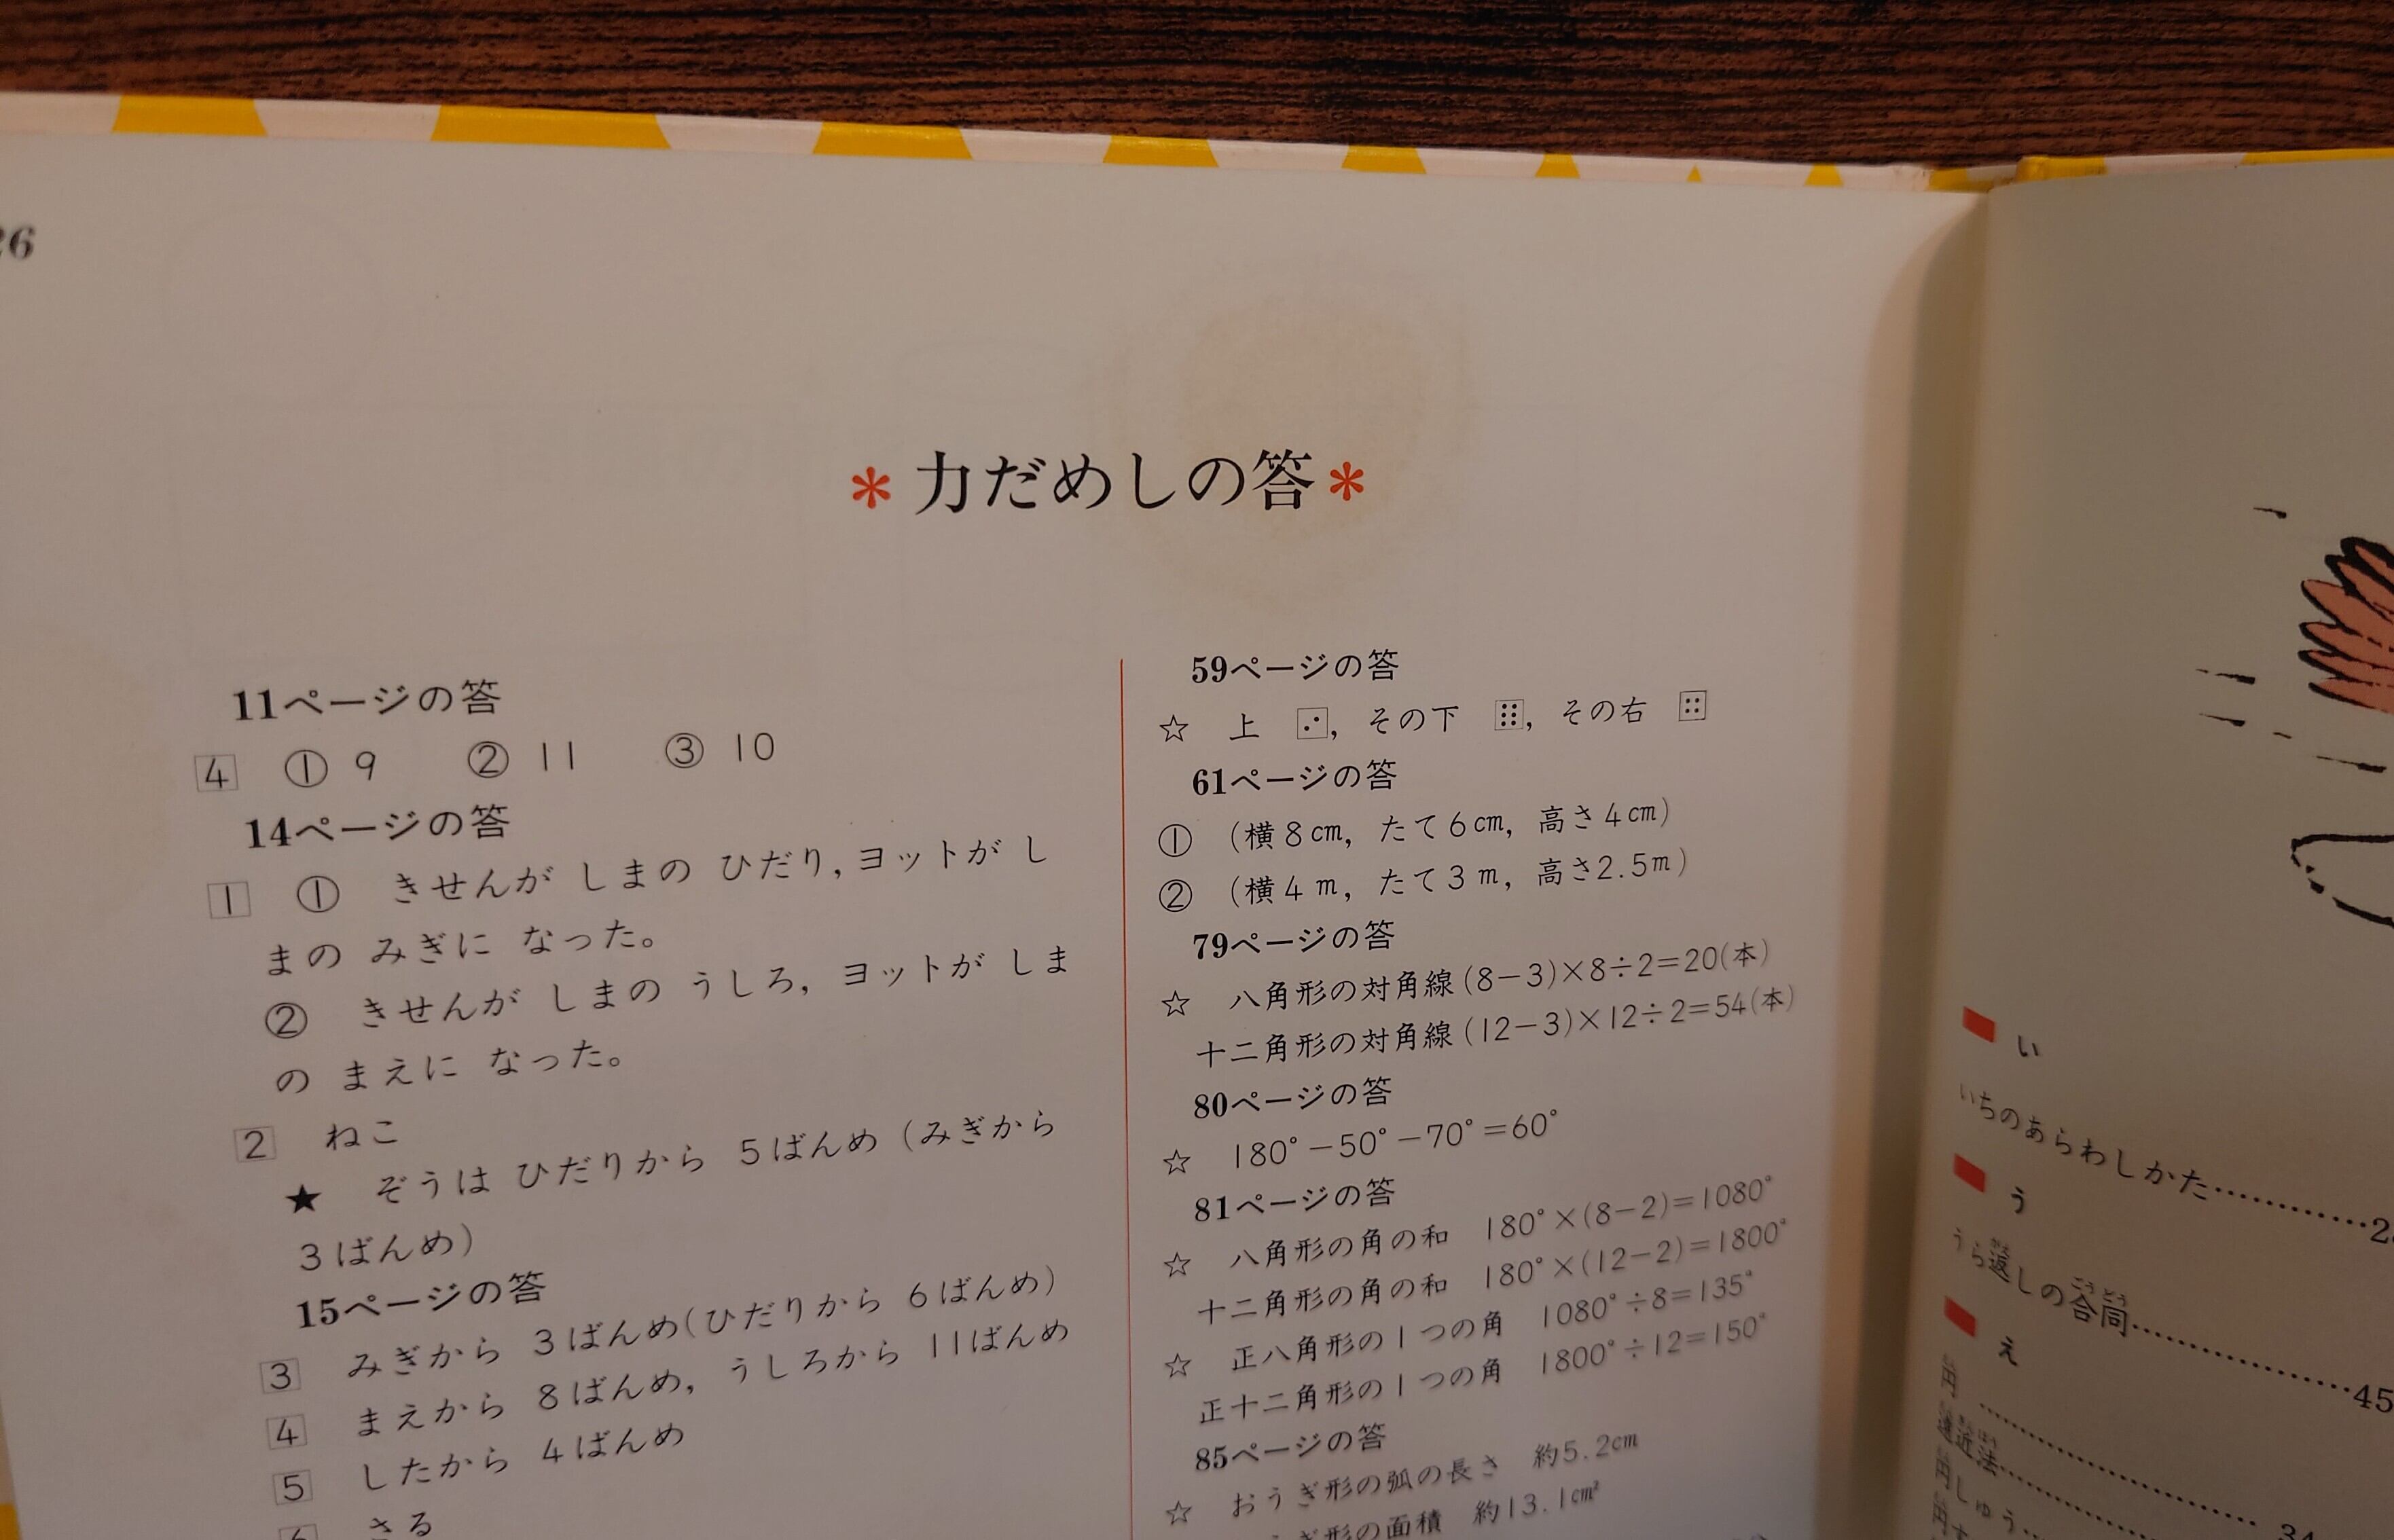 26
*力だめしの答*
11ページの答
4 ① 9 ② 11 ③ 10
14ページの答
1 ① きせんが しまの ひだり,ヨットが し
まの みぎに なった。
② きせんが しまの うしろ, ヨットが しま
の まえに なった。
2 ねこ
★ ぞうは ひだりから 5ばんめ(みぎから
3ばんめ)
15ページの答
3 みぎから 3ばんめ(ひだりから 6ばんめ)
4 まえから 8ばんめ, うしろから 11ばんめ
5 したから 4ばんめ
6 さる
59ページの答
☆ 上 ⚂, その下 ⚅, その右 ⚃
61ページの答
① (横8cm, たて6cm, 高さ4cm)
② (横4m, たて3m, 高さ2.5m)
79ページの答
☆ 八角形の対角線(8-3)×8÷2=20(本)
十二角形の対角線(12-3)×12÷2=54(本)
80ページの答
☆ 180°-50°-70°=60°
81ページの答
☆ 八角形の角の和 180°×(8-2)=1080°
十二角形の角の和 180°×(12-2)=1800°
☆ 正八角形の1つの角 1080°÷8=135°
正十二角形の1つの角 1800°÷12=150°
85ページの答
☆ おうぎ形の弧の長さ 約5.2cm
ぎ形の面積 約13.1cm²
い
いちのあらわしかた…………2
う
うら返しの合同…………45
え
円…………
遠近法…………34
円しゅう…